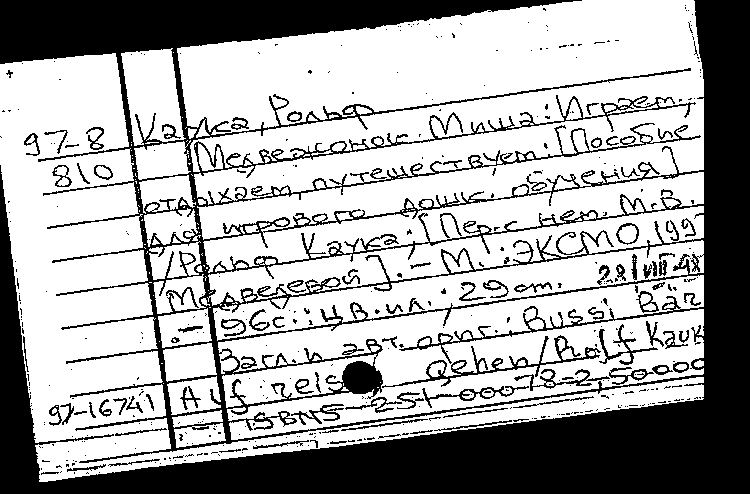 97-8 Каука, Рольф
810 Медвежонок Миша: Играем,
отдыхаем, путешествуем: [Пособие
для игрового дошк. обучения]
/Рольф Каука; [Пер. с нем. М.В.
Медведевой]. - М. : ЭКСМО, 199
. - 96с.: цв. ил. ; 29 cm.
Загл. и авт. ориг.: Bussi Bär
Auf reis gehen / Rolf Kauk
97-16741 . - ISBN 5-251-00078-2, 50000